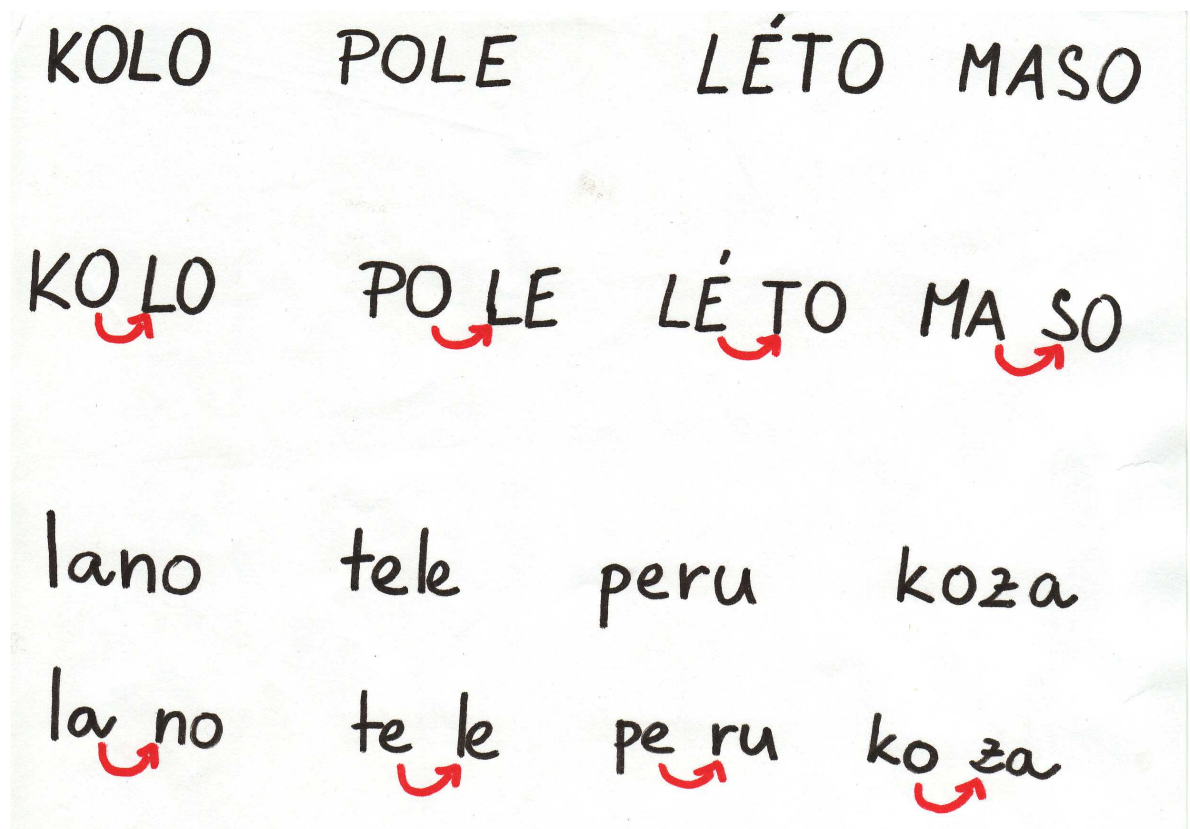 KOLO POLE LÉTO MASO
KO LO PO LE LÉ TO MA SO
lano tele peru koza
la no te le pe ru ko za